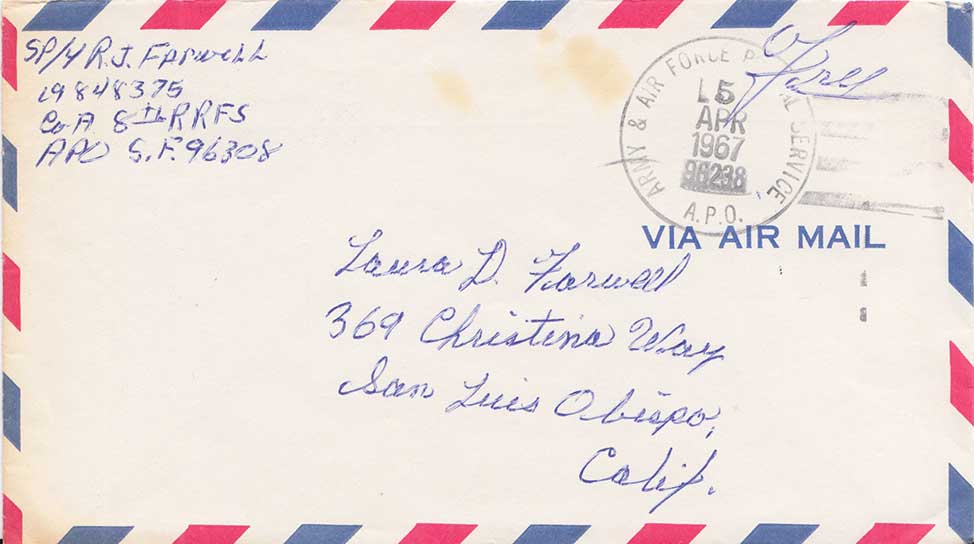 SP/4 R.J. FARWELL
19848375
Co A 8th RRFS
APO S.F. 96308
Free
ARMY & AIR FORCE P L SERVICE
15
APR
1967
96238
A.P.O.
VIA AIR MAIL
Laura D. Farwell
369 Christina Way
San Luis Obispo,
Calif.